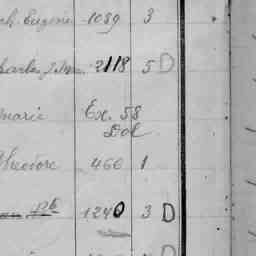 Eugene 1089 3
Charles 2118 5 D
Marie Ex. 58
Dol
Theodore 466 1
1240 3 D
D